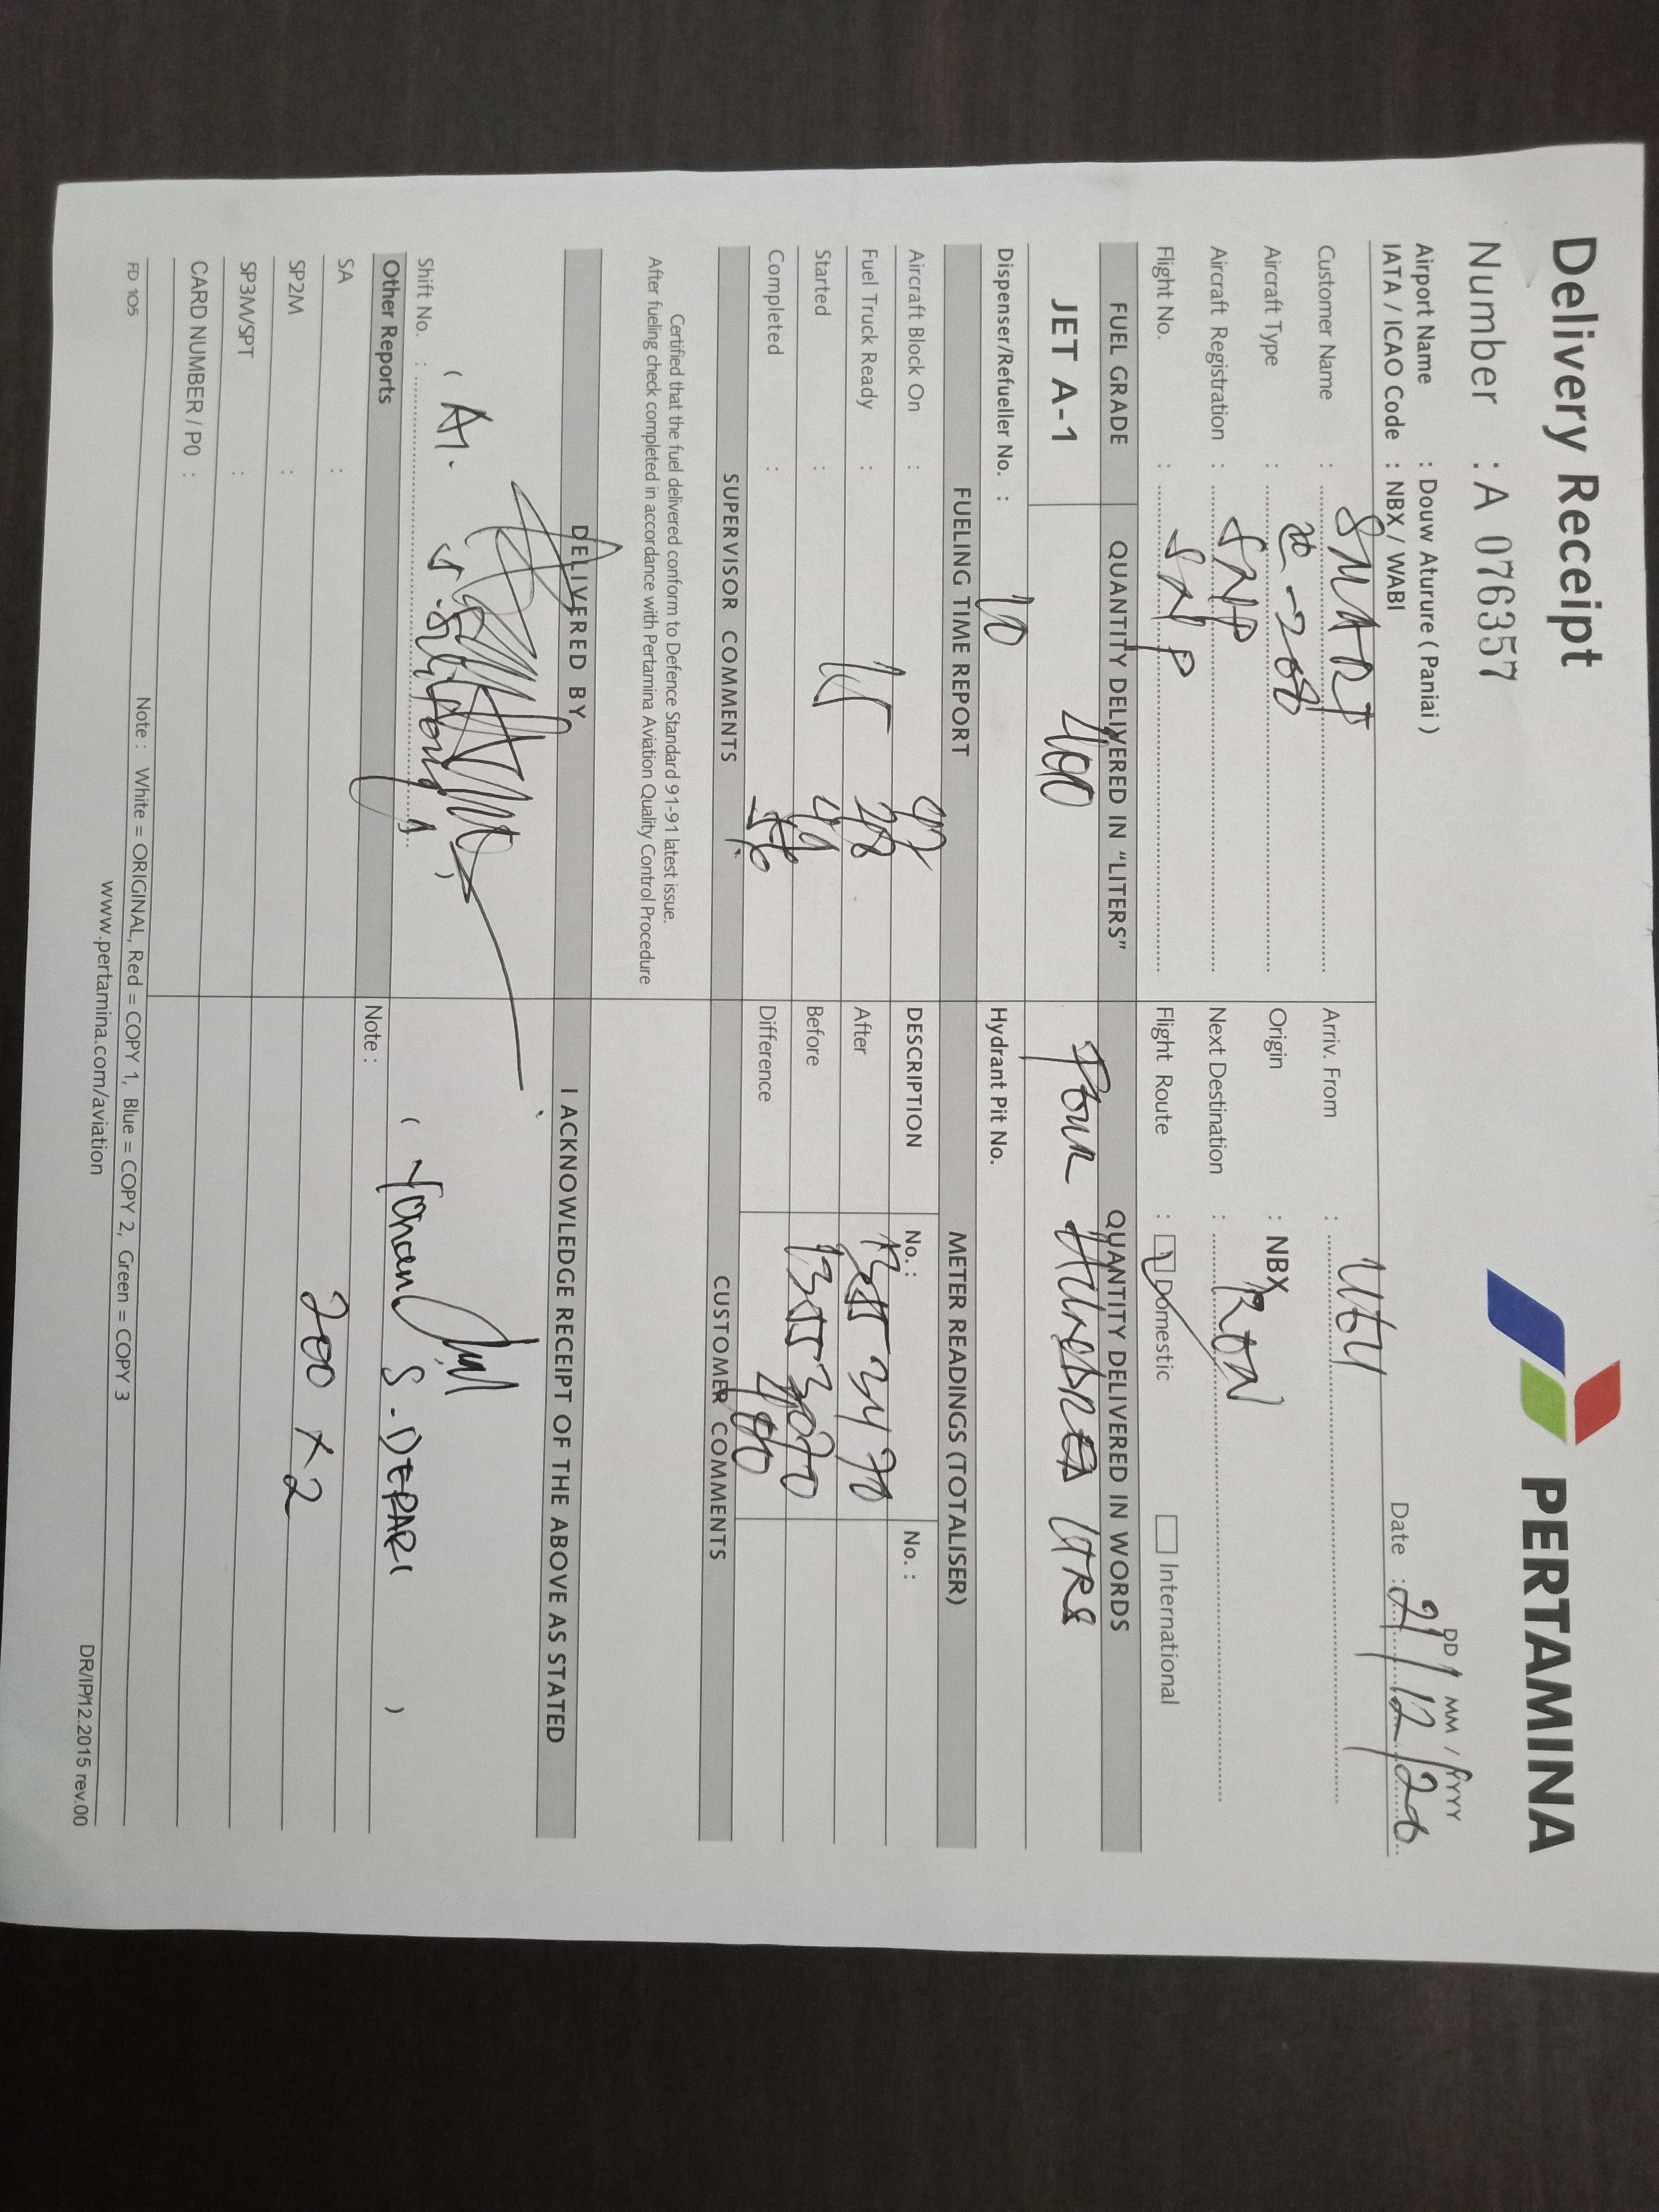 Delivery Receipt
PERTAMINA
Number : A 076357
DD / MM / YYYY
Airport Name : Douw Aturure ( Paniai )
Date : 21/12/20
IATA / ICAO Code : NBX / WABI
Customer Name : SMART
Arriv. From :
Aircraft Type : -208
Origin : NBX
Aircraft Registration : SNP
Next Destination :
Flight No. : SNP
Flight Route : Domestic International
FUEL GRADE QUANTITY DELIVERED IN "LITERS" QUANTITY DELIVERED IN WORDS
JET A-1 400 Four HUNDRED LTRS
Dispenser/Refueller No. : 10
Hydrant Pit No.
FUELING TIME REPORT METER READINGS (TOTALISER)
Aircraft Block On :
DESCRIPTION No. : No. :
Fuel Truck Ready :
After
Started :
Before
Completed :
Difference 400
SUPERVISOR COMMENTS CUSTOMER COMMENTS
Certified that the fuel delivered conform to Defence Standard 91-91 latest issue.
After fueling check completed in accordance with Pertamina Aviation Quality Control Procedure
DELIVERED BY I ACKNOWLEDGE RECEIPT OF THE ABOVE AS STATED
( )
( S. DEPARI )
Shift No. :
Other Reports Note :
SA :
SP2M : 200 x 2
SP3M/SPT :
CARD NUMBER / PO :
Note : White = ORIGINAL, Red = COPY 1, Blue = COPY 2, Green = COPY 3
FD 105
www.pertamina.com/aviation
DR/IP/12.2015 rev.00